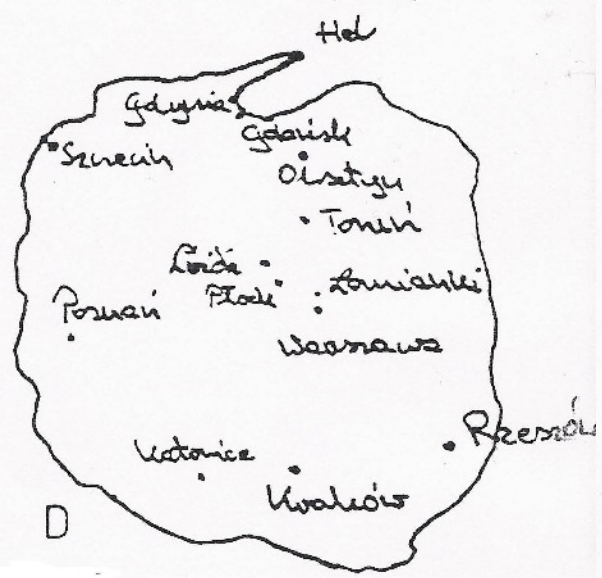 Hel
Gdynia
Gdańsk
Szczecin
Olsztyn
Toruń
Łódź
Płock
Łomianki
Poznań
Warszawa
Rzeszów
Katowice
Kraków
D